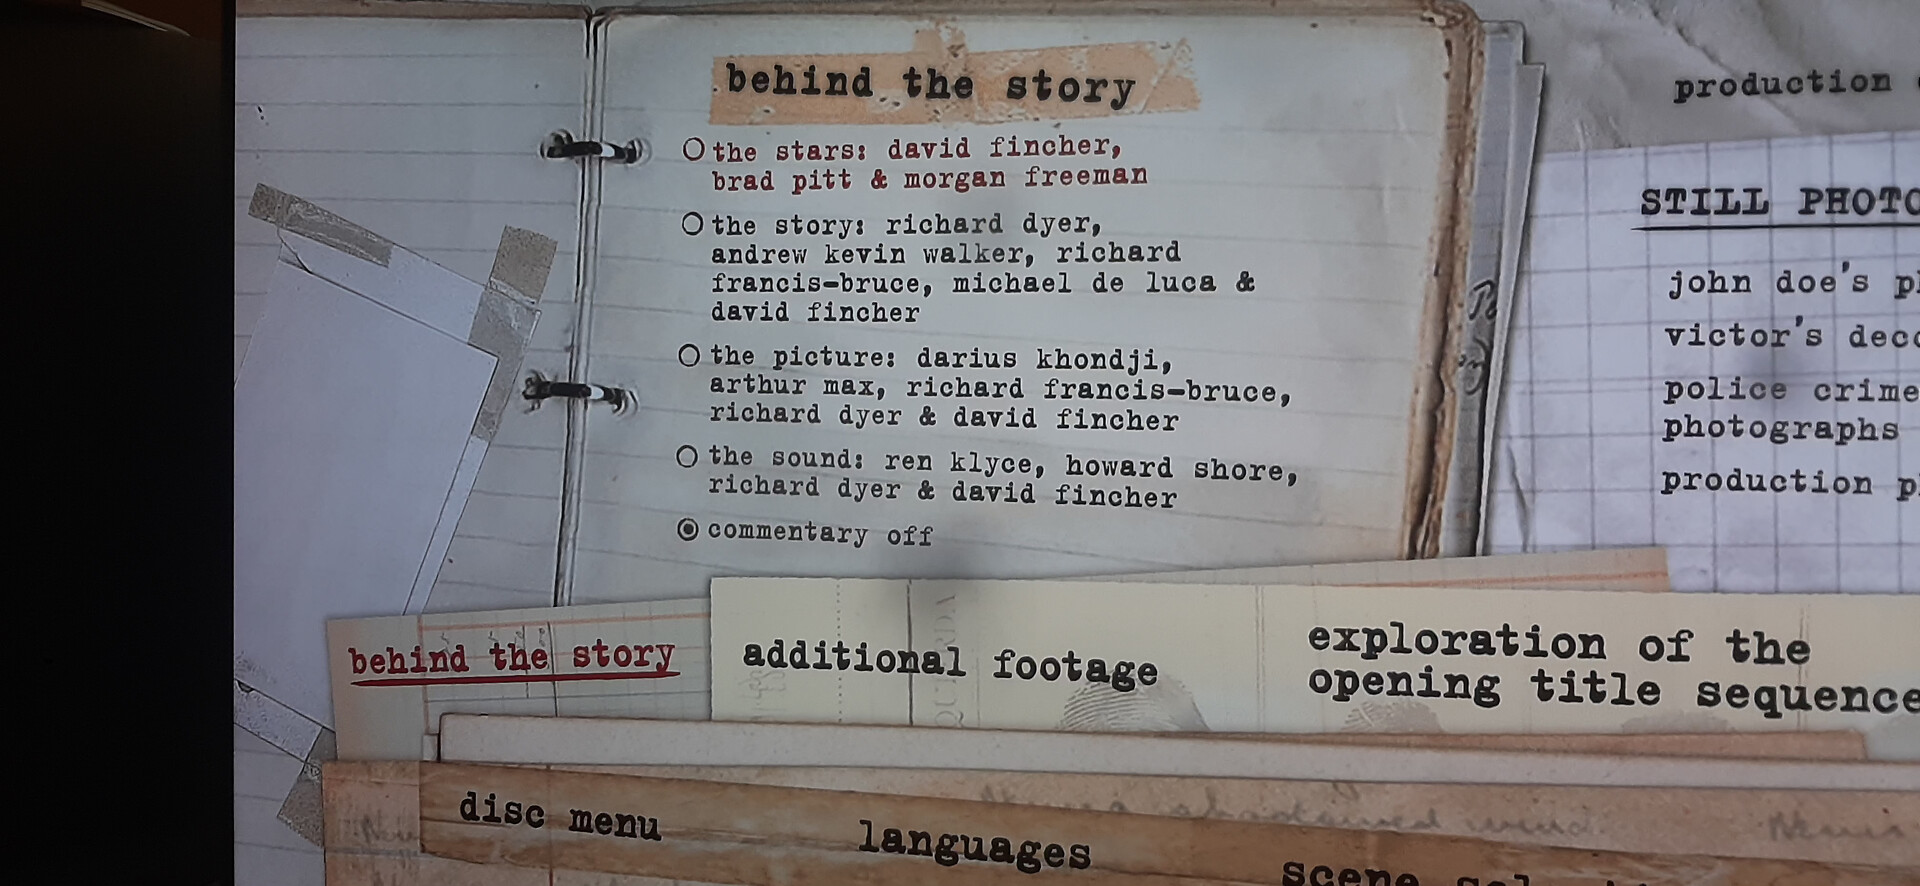 behind the story
the stars: david fincher,
brad pitt & morgan freeman
the story: richard dyer,
andrew kevin walker, richard
francis-bruce, michael de luca &
david fincher
the picture: darius khondji,
arthur max, richard francis-bruce,
richard dyer & david fincher
the sound: ren klyce, howard shore,
richard dyer & david fincher
commentary off
production
STILL PHOTO
john doe's
victor's
police crime
photographs
production
behind the story
additional footage
exploration of the
opening title sequence
disc menu
languages
scene